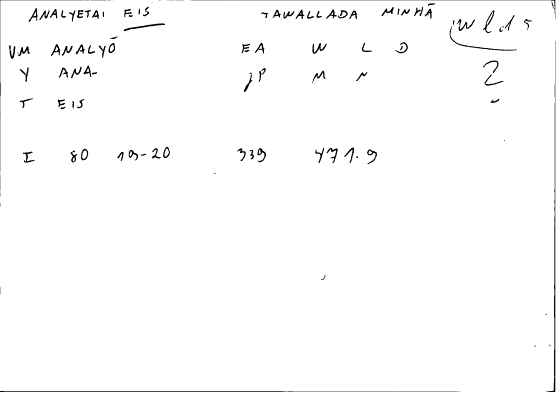 ANALYETAI EIS TAWALLADA MINHĀ wlds
VM ANALYŌ EA W L D 2
Y ANA- JP M N
T EIS
I 80 19-20 339 471.9